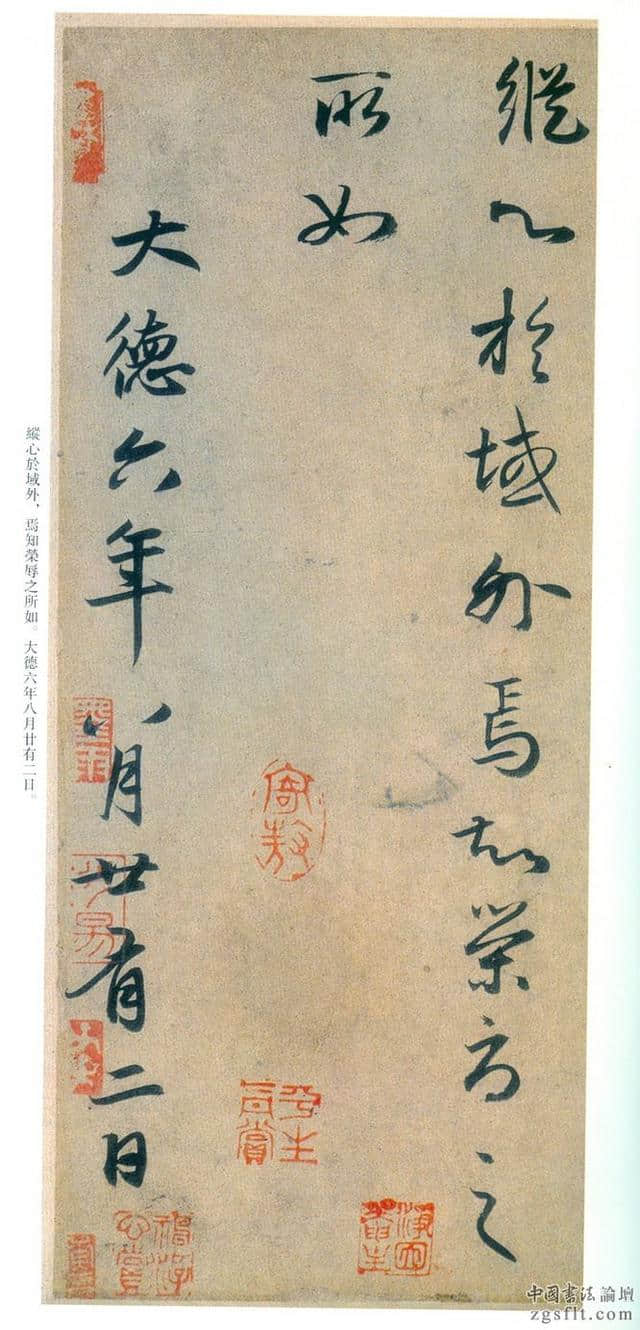 縱心於域外焉知榮辱之
所如
大德六年八月廿有二日
縱心於域外，焉知榮辱之所如。大德六年八月廿有二日。
中国書法論壇
zgsflt.com